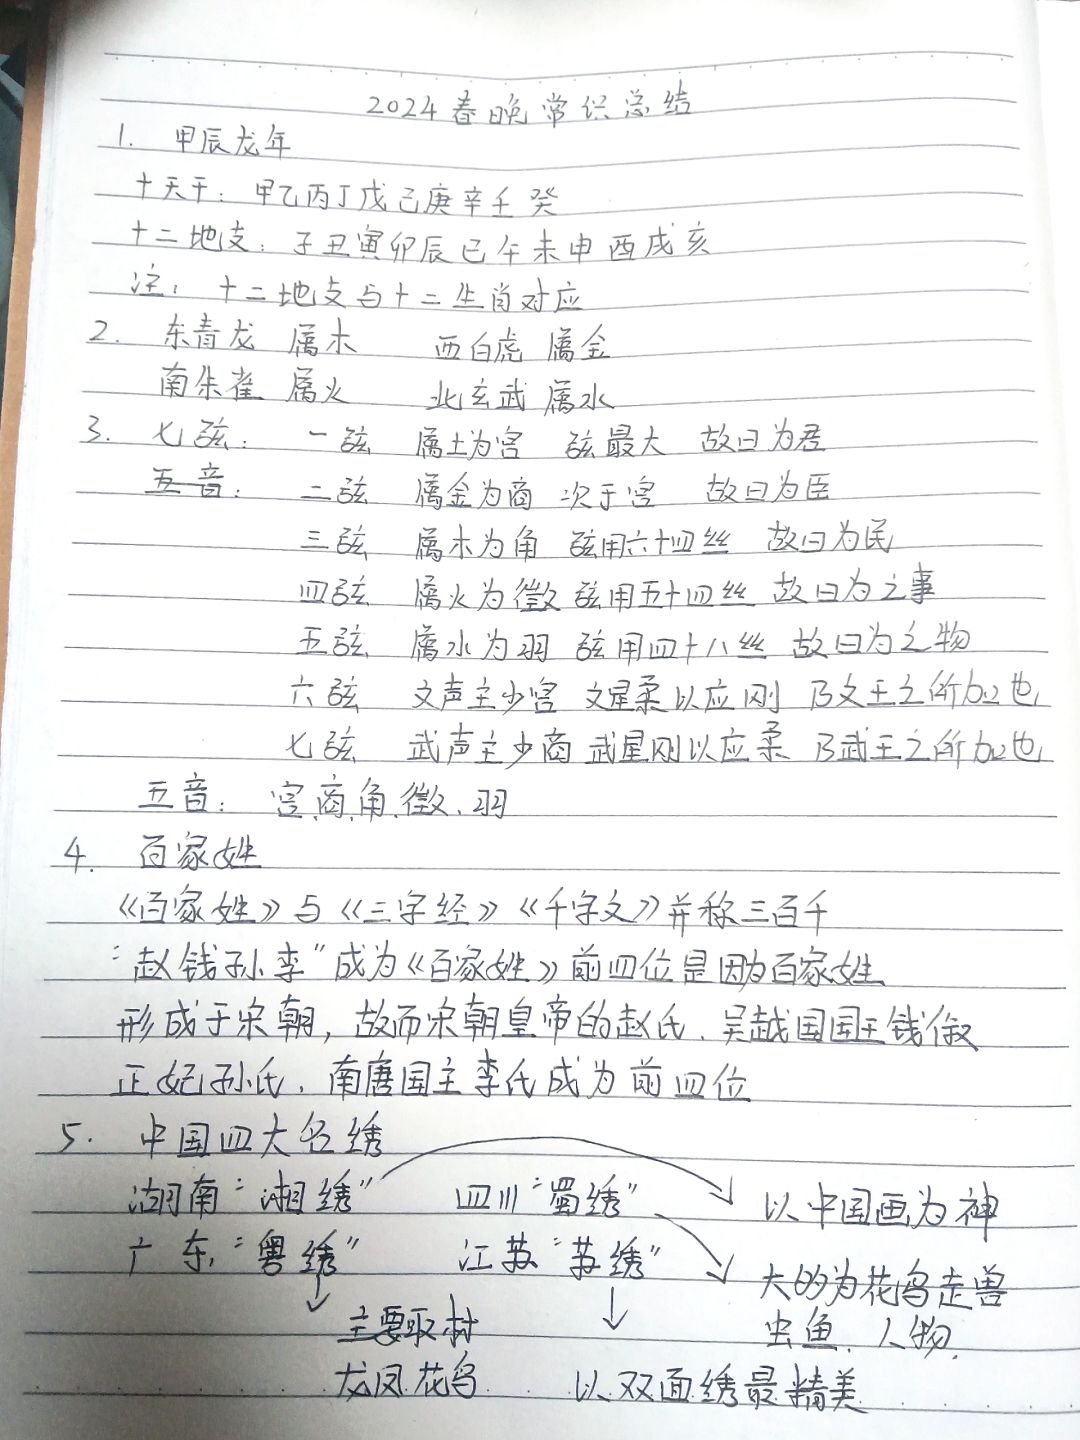 2024春晚常识总结
1. 甲辰龙年
十天干：甲乙丙丁戊己庚辛壬癸
十二地支：子丑寅卯辰巳午未申酉戌亥
注：十二地支与十二生肖对应
2. 东青龙 属木 西白虎 属金
南朱雀 属火 北玄武 属水
3. 七弦：一弦 属土为宫 弦最大 故曰为君
五音：二弦 属金为商 次于宫 故曰为臣
三弦 属木为角 弦用六十四丝 故曰为民
四弦 属火为徵 弦用五十四丝 故曰为之事
五弦 属水为羽 弦用四十八丝 故曰为之物
六弦 文声主少宫 文星柔以应刚 乃文王之所加也
七弦 武声主少商 武星刚以应柔 乃武王之所加也
五音：宫、商、角、徵、羽
4. 百家姓
《百家姓》与《三字经》《千字文》并称三百千
“赵钱孙李”成为《百家姓》前四位是因为百家姓
形成于宋朝，故而宋朝皇帝的赵氏、吴越国国王钱俶
正妃孙氏、南唐国主李氏成为前四位
5. 中国四大名绣
湖南“湘绣” 四川“蜀绣” 以中国画为神
广东“粤绣” 江苏“苏绣” 大的为花鸟走兽
主要取材 虫鱼、人物.
龙凤花鸟 以双面绣最精美